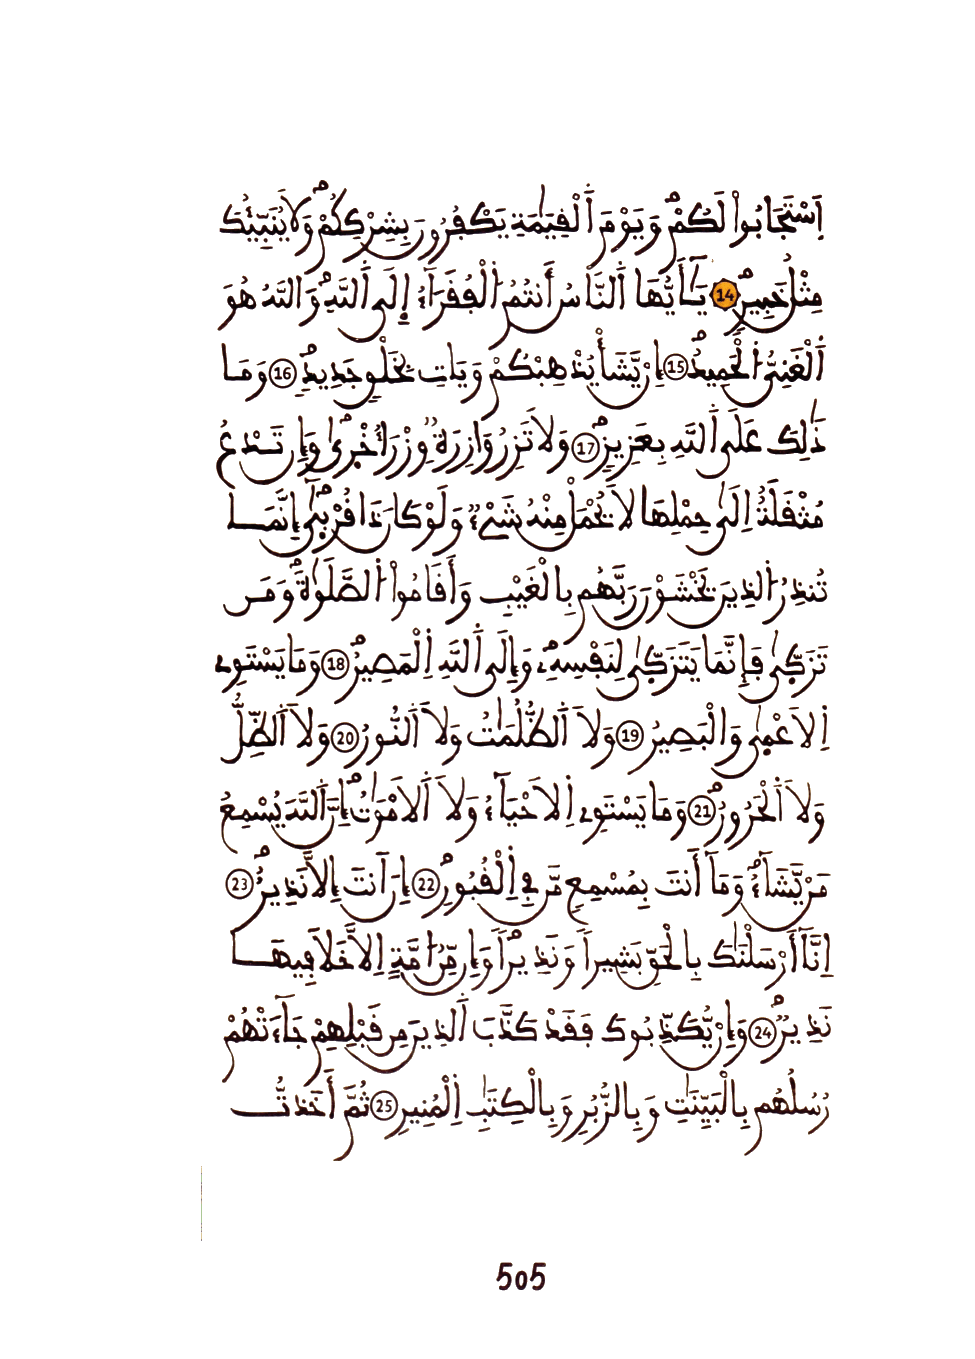 اَسْتَجَابُواْ لَكُمْ وَيَوْمَ اَلْقِيَٰمَةِ يَكْفُرُونَ بِشِرْكِكُمْ وَلَا يُنَبِّئُكَ
مِثْلُ خَبِيرٍ 14 يَٰٓأَيُّهَا اَلنَّاسُ أَنتُمُ اُلْفُقَرَآءُ إِلَى اَللَّهِ وَاللَّهُ هُوَ
اَلْغَنِيُّ اُلْحَمِيدُ 15 إِنْ يَّشَأْ يُذْهِبْكُمْ وَيَاتِ بِخَلْقٍ جَدِيدٍ 16 وَمَا
ذَٰلِكَ عَلَى اَللَّهِ بِعَزِيزٍ 17 وَلَا تَزِرُ وَازِرَةٌ وِزْرَ أُخْرَىٰ وَإِن تَدْعُ
مُثْقَلَةٌ إِلَىٰ حِمْلِهَا لَا يُحْمَلْ مِنْهُ شَيْءٌ وَلَوْ كَانَ ذَا قُرْبَىٰٓ إِنَّمَا
تُنذِرُ اُلذِينَ يَخْشَوْنَ رَبَّهُم بِالْغَيْبِ وَأَقَامُواْ اُلصَّلَوٰةَ وَمَن
تَزَكَّىٰ فَإِنَّمَا يَتَزَكَّىٰ لِنَفْسِهِۦ وَإِلَى اَللَّهِ اِلْمَصِيرُ 18 وَمَا يَسْتَوِے
اِلَاعْمَىٰ وَالْبَصِيرُ 19 وَلَا اَلظُّلُمَٰتُ وَلَا اَلنُّورُ 20 وَلَا اَلظِّلُّ
وَلَا اَلْحَرُورُ 21 وَمَا يَسْتَوِے اِلَاحْيَآءُ وَلَا اَلَامْوَٰتُ إِنَّ اَللَّهَ يُسْمِعُ
مَنْ يَّشَآءُ وَمَآ أَنتَ بِمُسْمِعٍ مَّن فِي اِلْقُبُورِ 22 إِنَ اَنتَ إِلَّا نَذِيرٌ 23
اِنَّآ أَرْسَلْنَٰكَ بِالْحَقِّ بَشِيراً وَنَذِيراً وَإِن مِّنُ امَّةٍ اِلَّا خَلَا فِيهَا
نَذِيرٌ 24 وَإِنْ يُّكَذِّبُوكَ فَقَدْ كَذَّبَ اَلذِينَ مِن قَبْلِهِمْ جَآءَتْهُمْ
رُسُلُهُم بِالْبَيِّنَٰتِ وَبِالزُّبُرِ وَبِالْكِتَٰبِ اِلْمُنِيرِ 25 ثُمَّ أَخَذتُّ
505